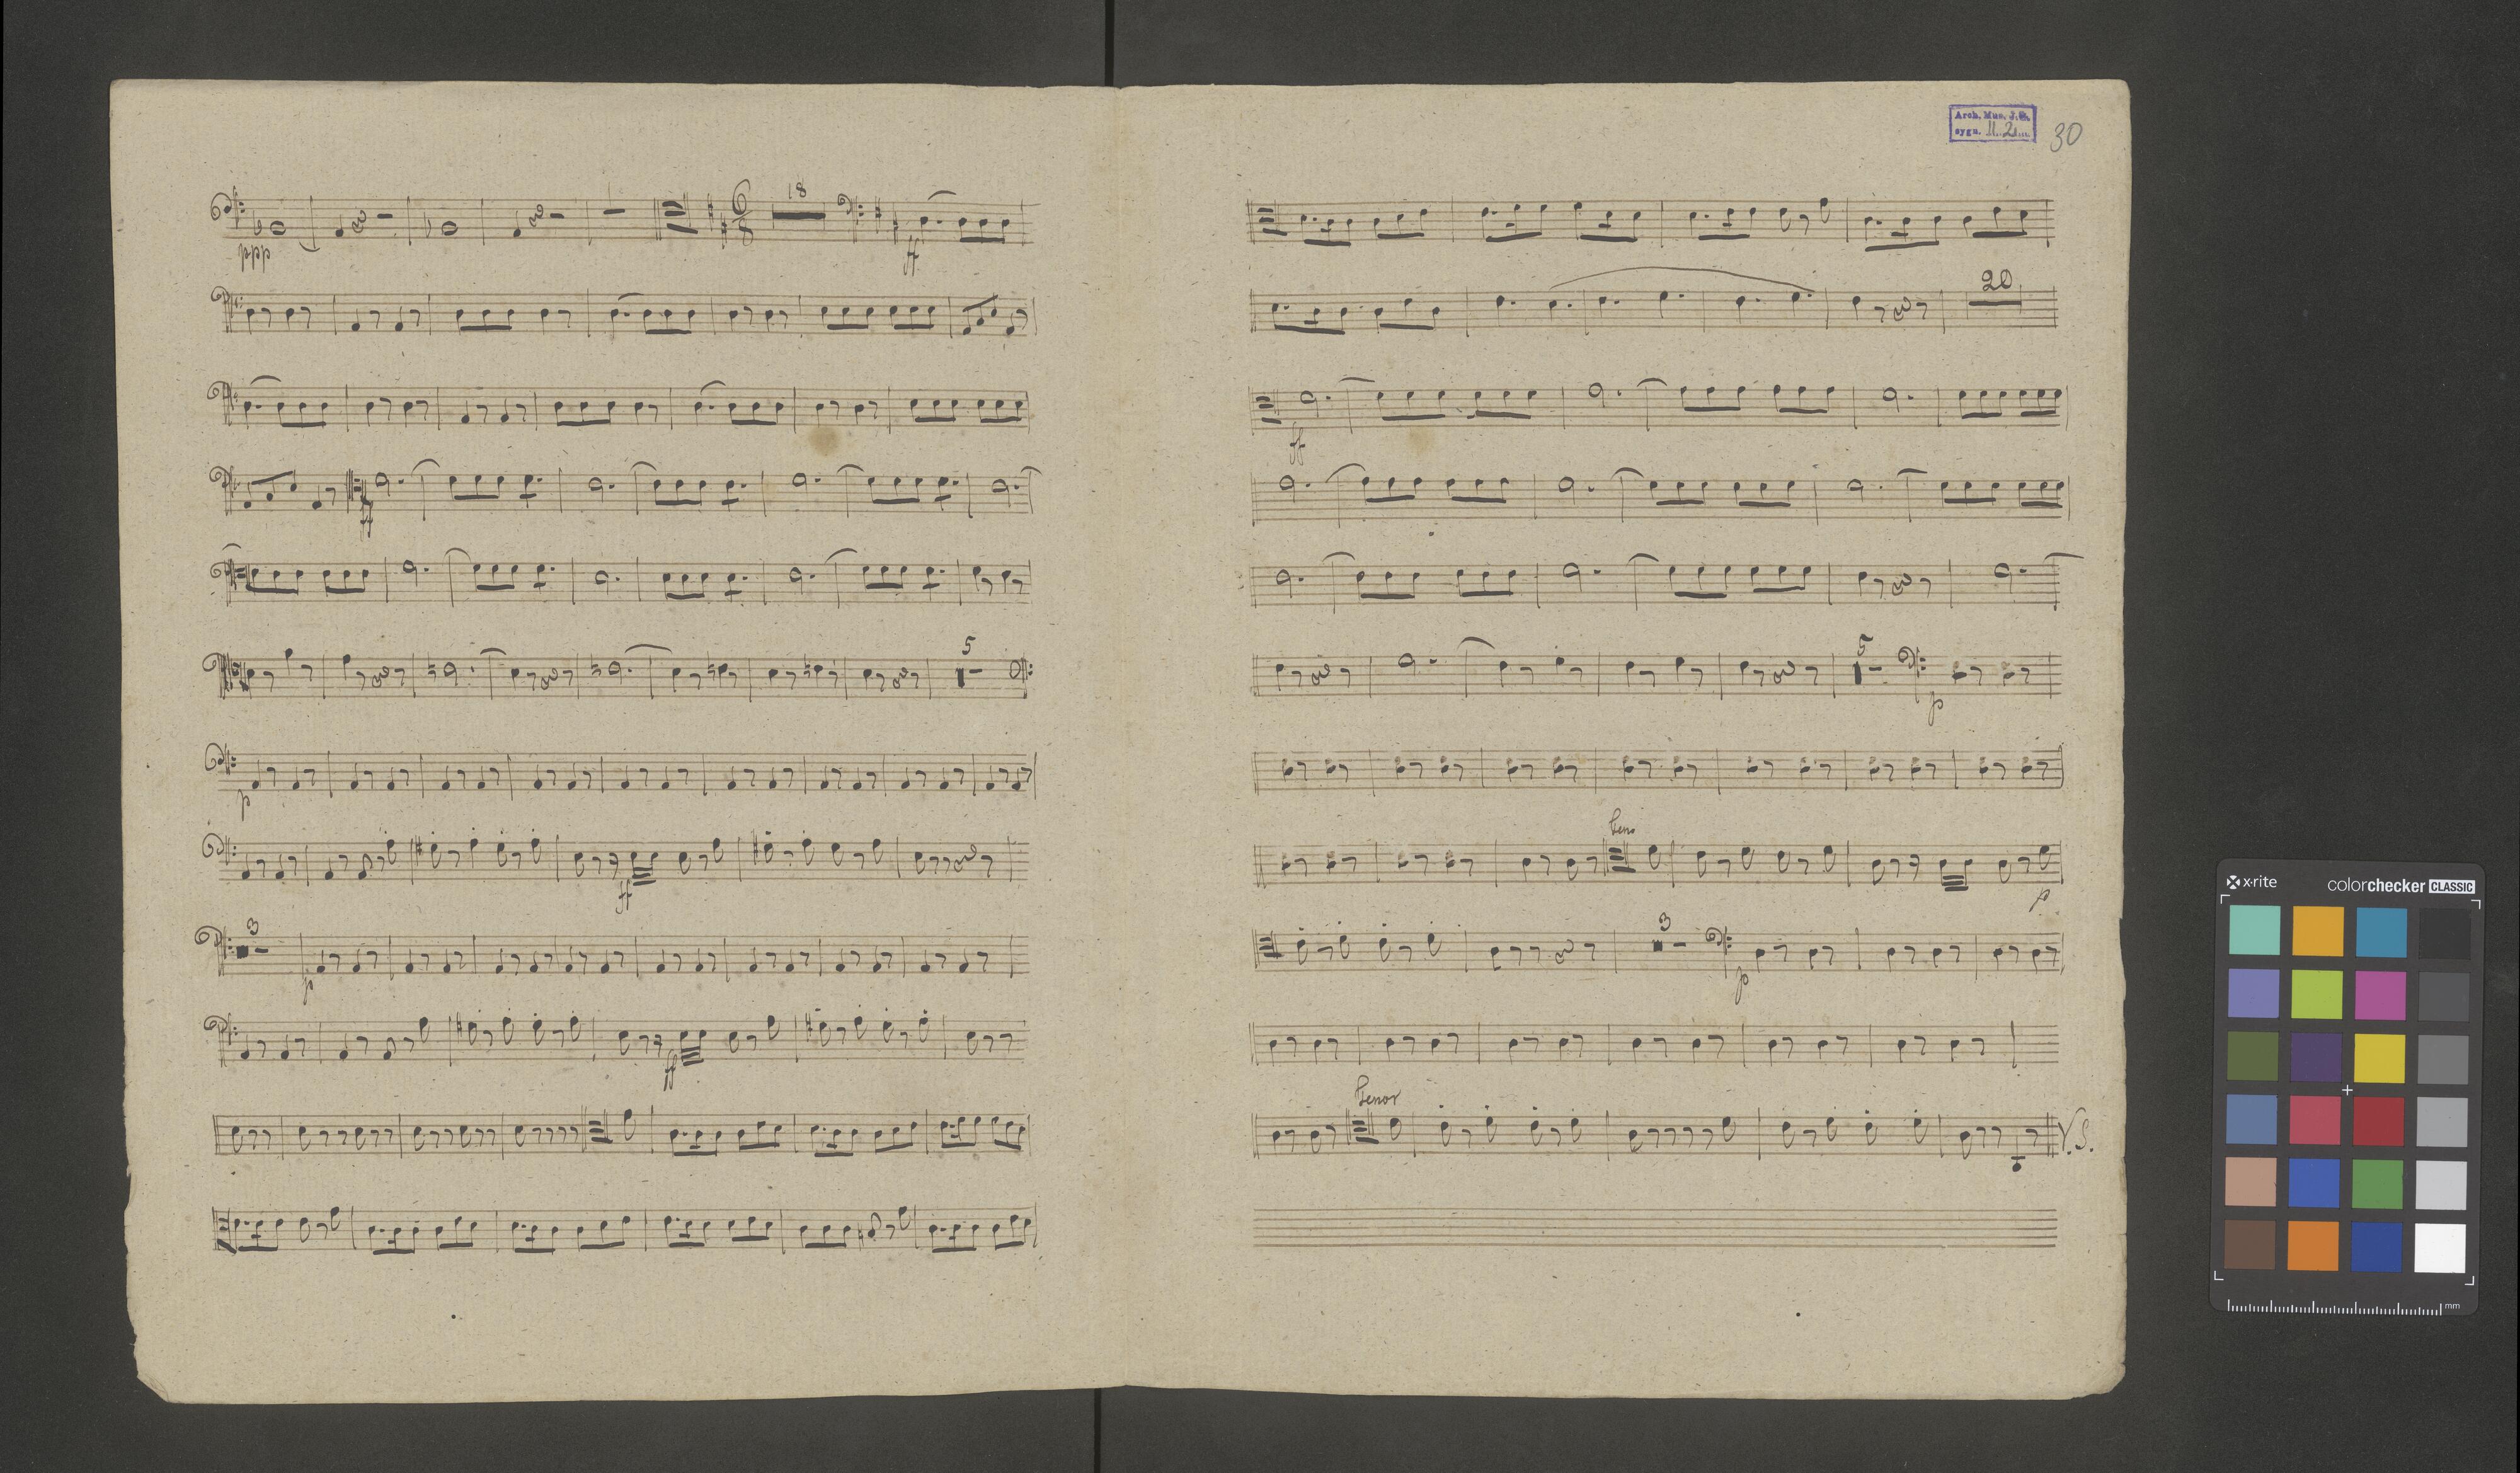 18
ppp
ff
ff
5
p
ff
3
p
ff
Arch. Muz. J.G.
sygn. II. 2
30
20
ff
5
p
p
3
p
Tenor
V.S.
x-rite
colorchecker CLASSIC
mm